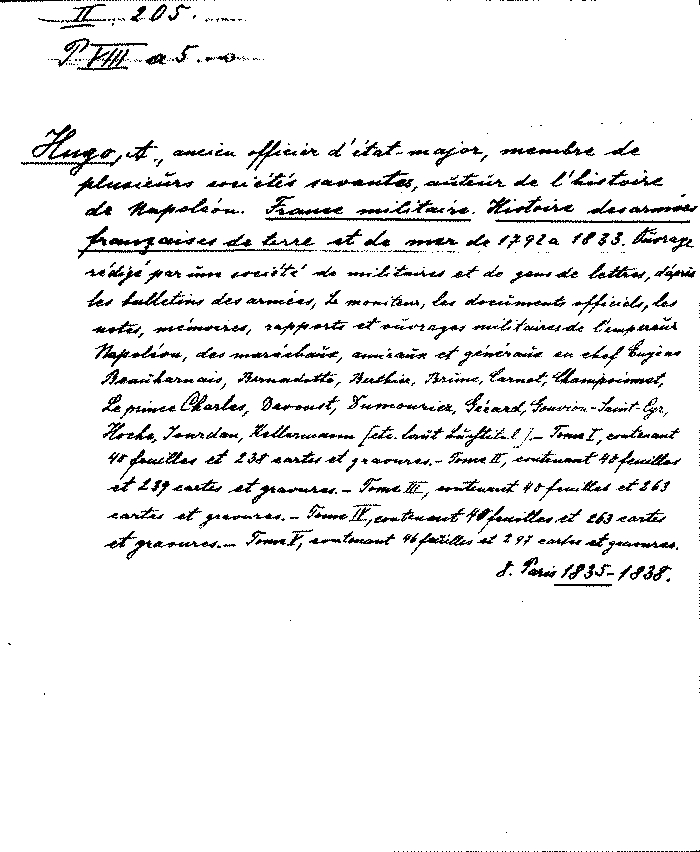 II 205.
P VIII a 5.
Hugo, A., ancien officier d'état-major, membre de
plusieurs sociétés savantes, auteur de l'histoire
de Napoléon. France militaire. Histoire des armées
françaises de terre et de mer de 1792 a 1833. Ouvrage
rédigé par une société de militaires et de gens de lettres, d'après
les bulletins des armées, Le moniteur, les documents officiels, les
notes, mémoires, rapports et ouvrages militaires de l'empereur
Napoléon, des maréchaux, amiraux et généraux en chef Eugène
Beauharnais, Bernadotte, Berthier, Brune, Carnot, Championnet,
Le prince Charles, Davoust, Dumouriez, Gérard, Gouvion-Saint-Cyr,
Hoche, Jourdan, Kellermann [etc. laut Buchtitel]. - Tome I, contenant
40 feuilles et 238 cartes et gravures. - Tome II, contenant 40 feuilles
et 239 cartes et gravures. - Tome III, contenant 40 feuilles et 263
cartes et gravures. - Tome IV, contenant 40 feuilles et 263 cartes
et gravures. - Tome V, contenant 46 feuilles et 297 cartes et gravures.
8. Paris 1835-1838.